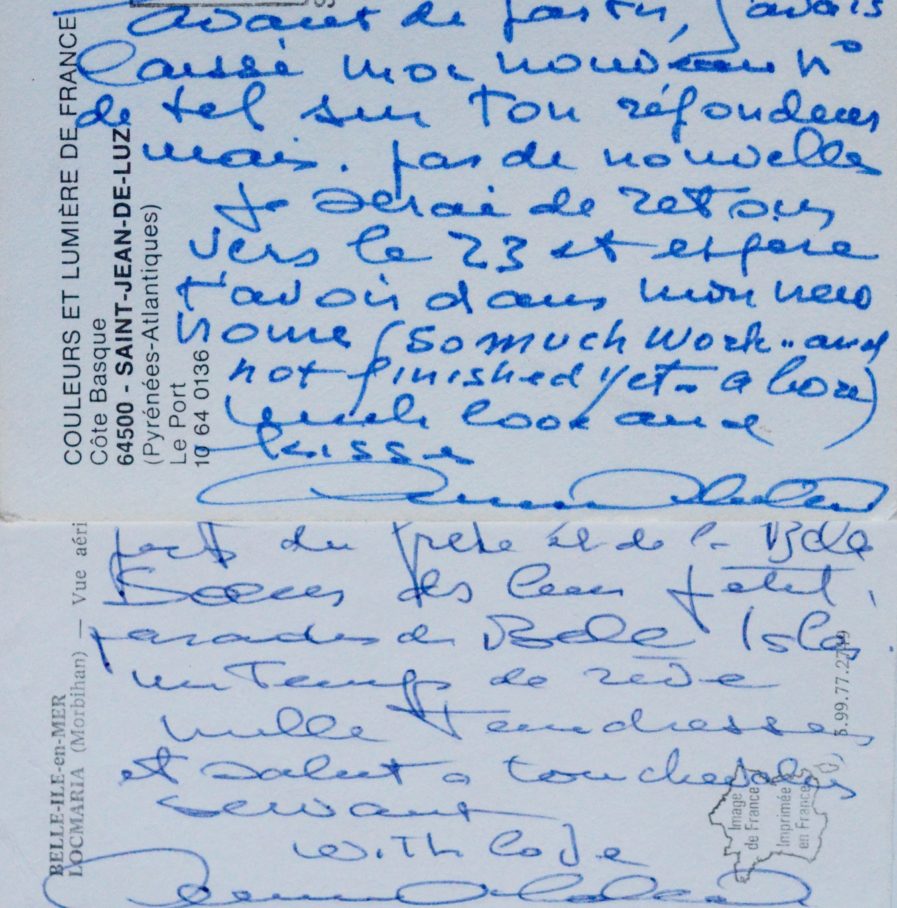 avant de partir, j'avais
laissé mon nouveau n°
de tel sur ton répondeur
mais. pas de nouvelles
Je serai de retour
vers le 23 et espère
t'avoir dans mon new
home (so much work.. and
not finished yet - a bore)
much love and
kisses
COULEURS ET LUMIÈRE DE FRANCE
Côte Basque
64500 - SAINT-JEAN-DE-LUZ
(Pyrénées-Atlantiques)
Le Port
10 64 0136
du et de la Belle
des leur petit
paradis de Belle Isle.
un Temps de rêve
mille Tendresses
et salut a ton chevalier
servant
with love
BELLE-ILE-en-MER
LOCMARIA (Morbihan) — Vue aéri
3.99.77.2
Image
de France
Imprimée
en France